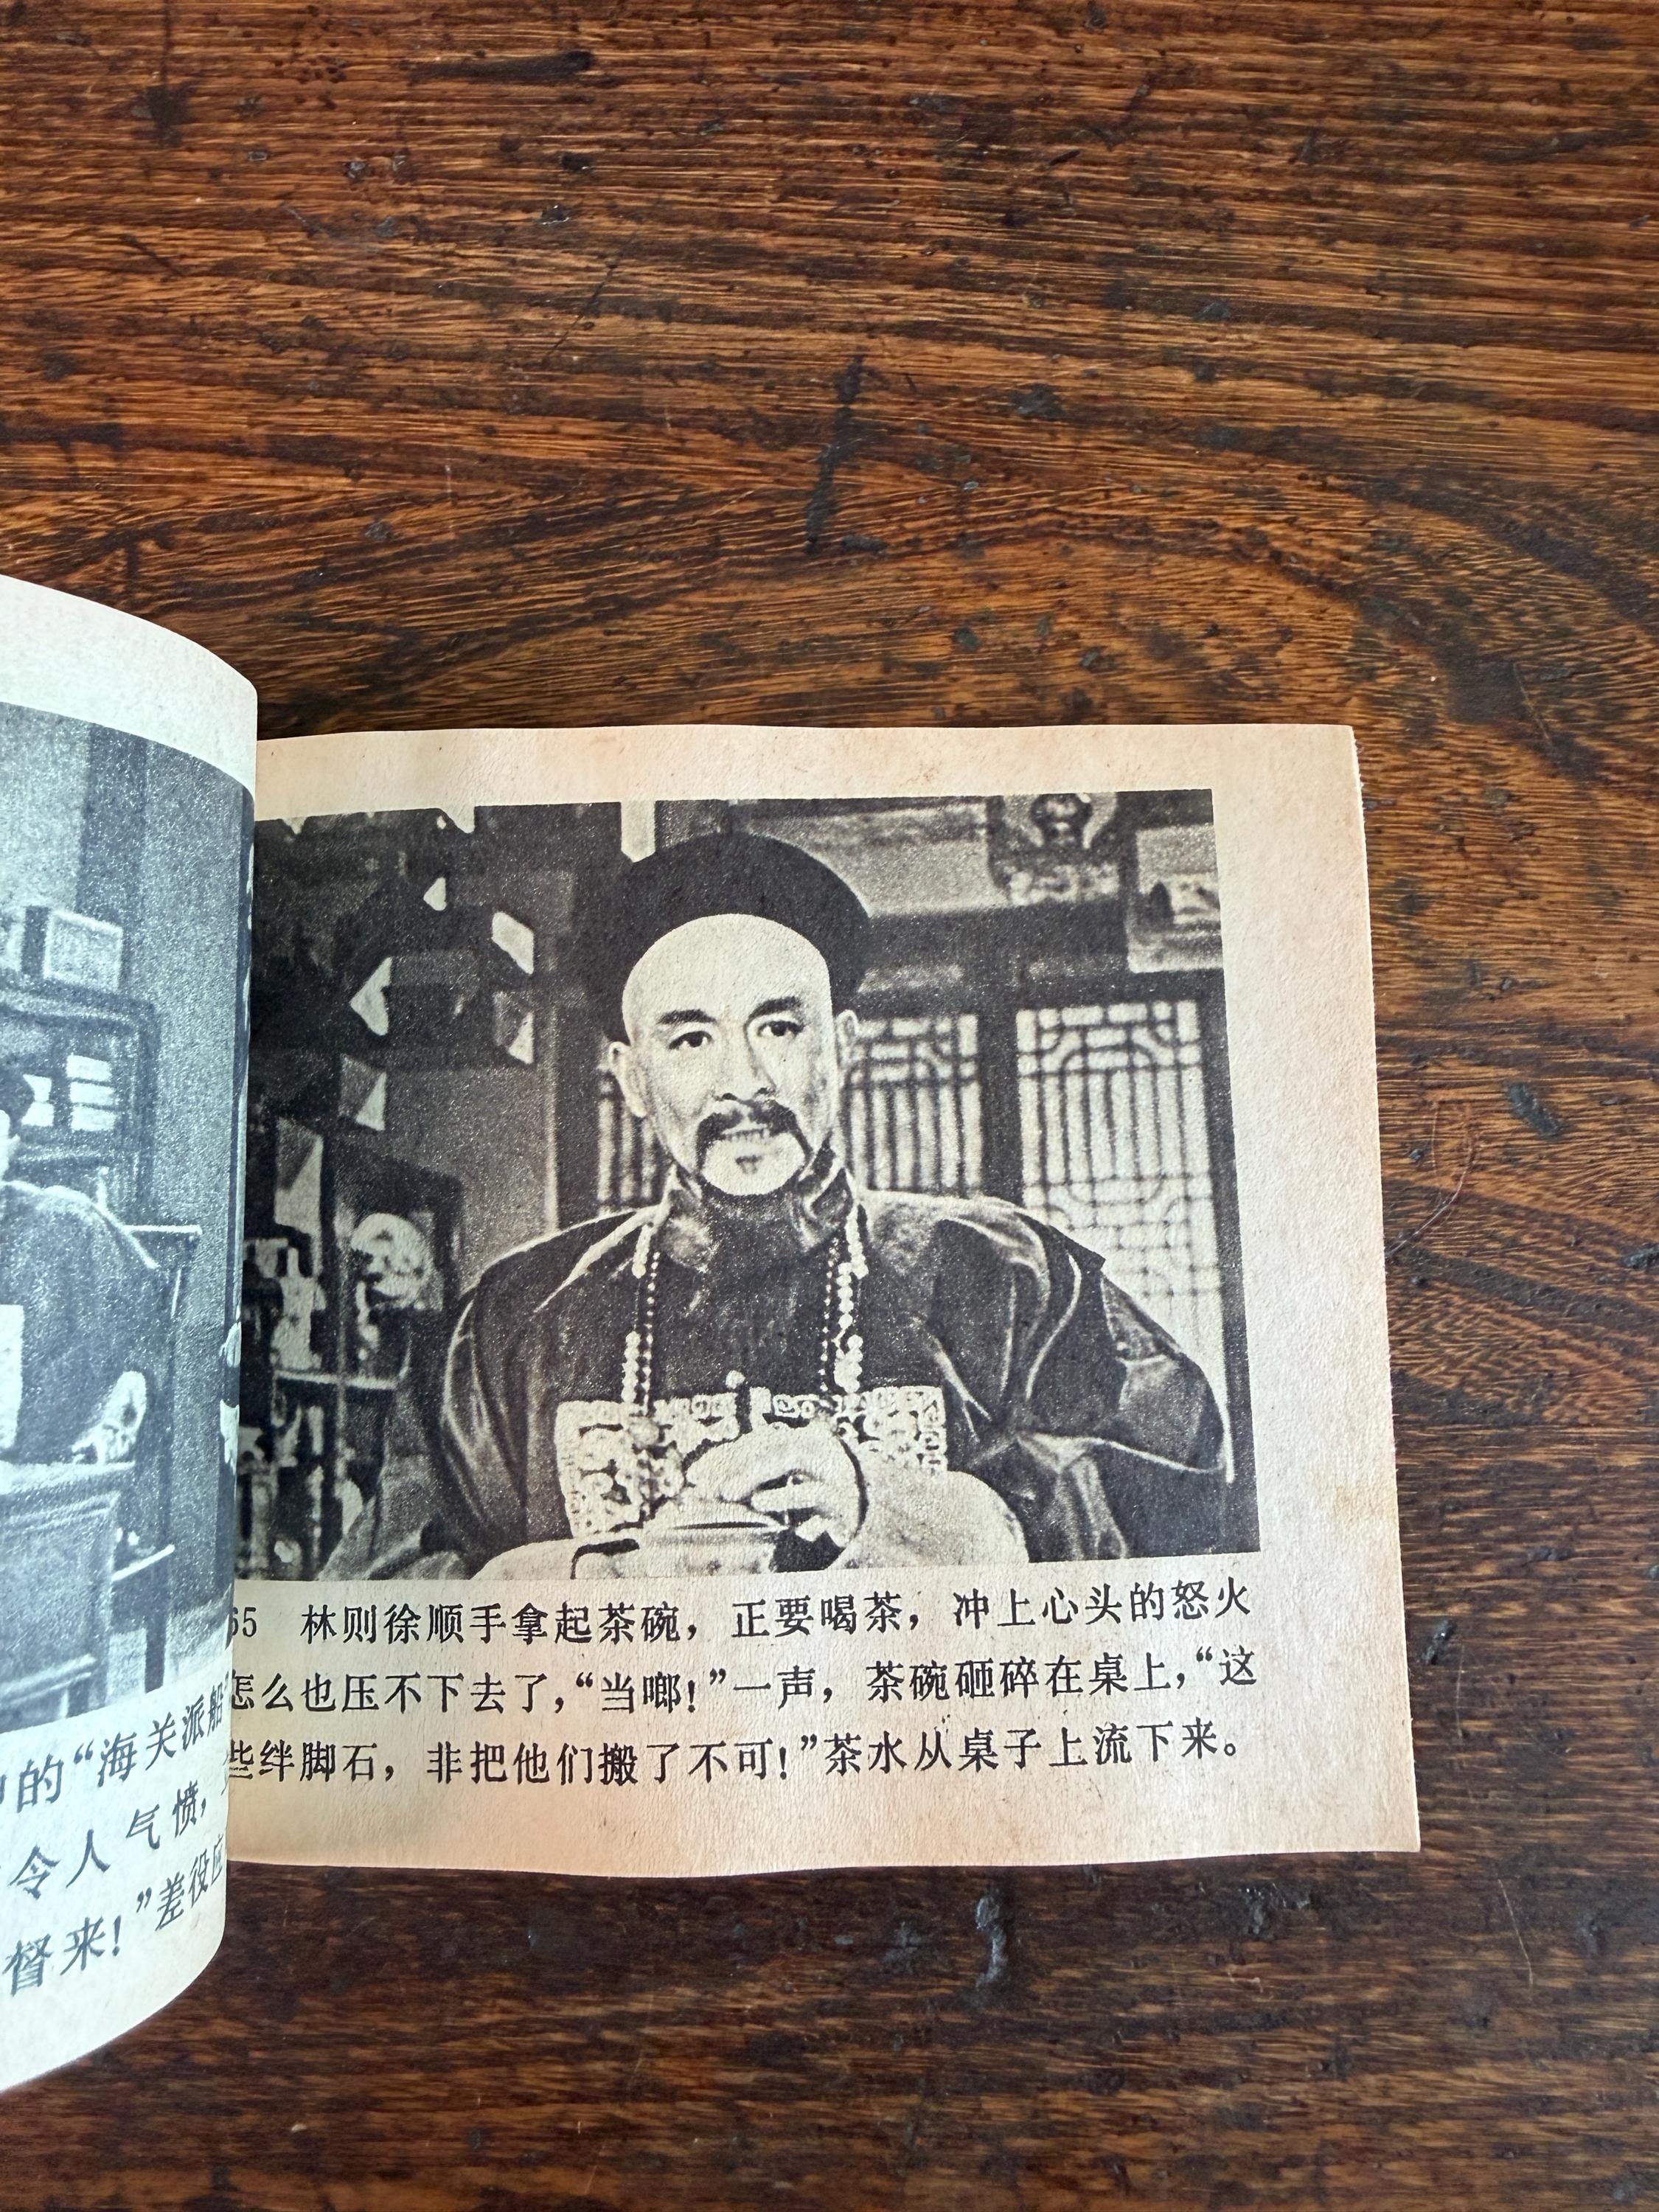 的“海关派船
令人气愤，
督来！”差役应
65 林则徐顺手拿起茶碗，正要喝茶，冲上心头的怒火
怎么也压不下去了，“当啷！”一声，茶碗砸碎在桌上，“这
些绊脚石，非把他们搬了不可！”茶水从桌子上流下来。